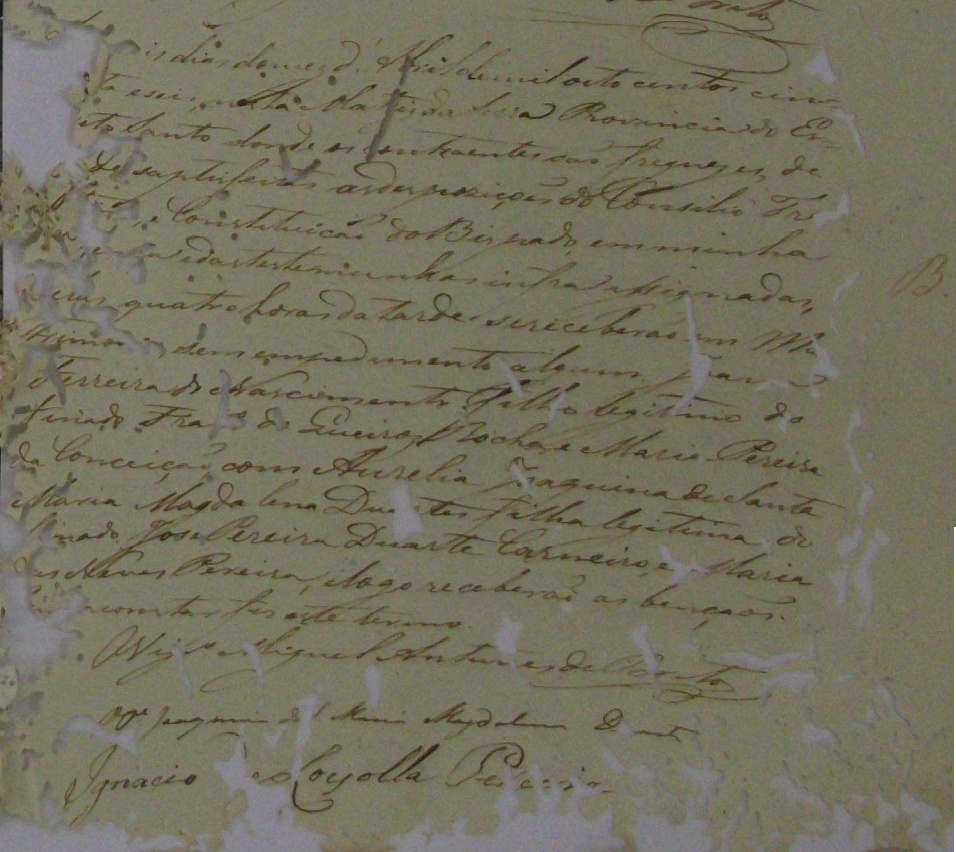 is dias do mez d' Abril de mil oito centos cin-
ta e seis, nesta Matris da Serra Provincia do Es-
ito Santo donde os contraentes são freguezes, de
as desposições do Consilio Tri-
e Constituição do Bispado, em minha
e das testemunhas infra assignadas,
quatro horas da tarde se receberaõ em Ma
trimoni, sem empedimento algum
Ferreira do Nascimento filho legitimo do
finado Fran de Queiroz Rocha, e Maria Pereira
da Conceição, com Aurelia Joaquina de Santa
Maria Magdalena Duartes filha legitima do
finado Jose Pereira Duarte Carneiro, e Maria
as Neves Pereira, e logo receberaõ as bençaõs.
constar fis este termo.
O Vigr.o Miguel Antunes de Brito
Joaquim de Maria Magdalena D
Ignacio de Loyolla Pereira
B.